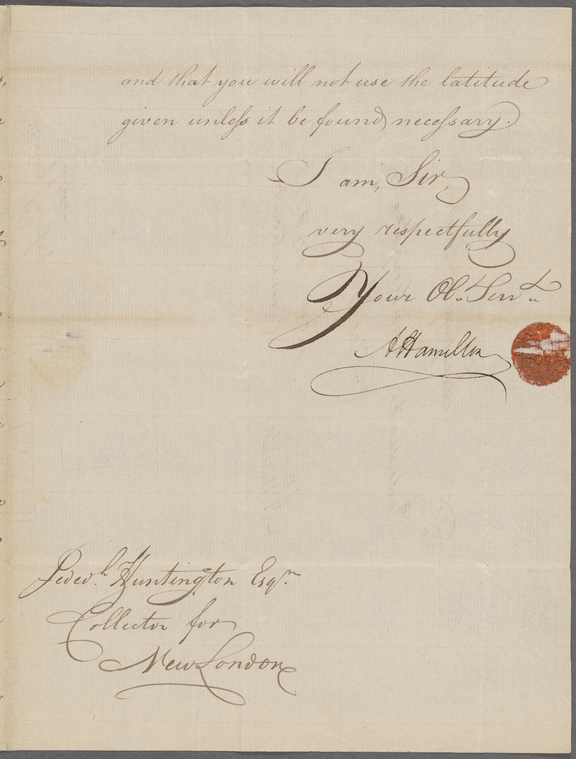 and that you will not use the latitude
given unless it be found necessary.
I am, Sir,
very respectfully
Your Ob. Servt
A Hamilton
Jeded.h Huntington Esqr
Collector for
New London